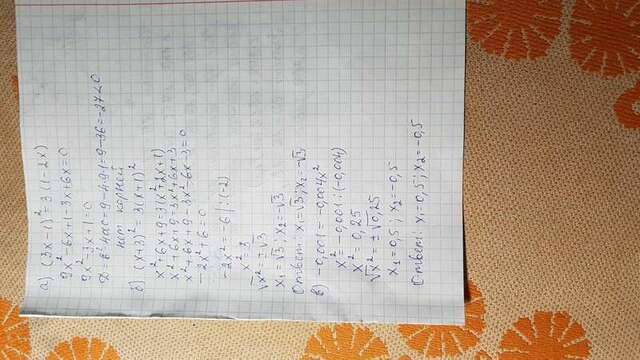 а) (3x-1)²=3(1-2x)
9x²-6x+1-3x+6x=0
9x²-3x+1=0
D=b²-4ac=9-4·9·1=9-36=-27<0
нет корней
б) (x+3)²=3(x+1)²
x²+6x+9=3(x²+2x+1)
x²+6x+9=3x²+6x+3
x²+6x+9-3x²-6x-3=0
-2x²+6=0
-2x²=-6 |:(-2)
x²=3
√x²=±√3
x₁=√3; x₂=-√3
Ответ: x₁=√3; x₂=-√3
в) -0,001=-0,004x²
x²=-0,001:(-0,004)
x²=0,25
√x²=±√0,25
x₁=0,5; x₂=-0,5
Ответ: x₁=0,5; x₂=-0,5